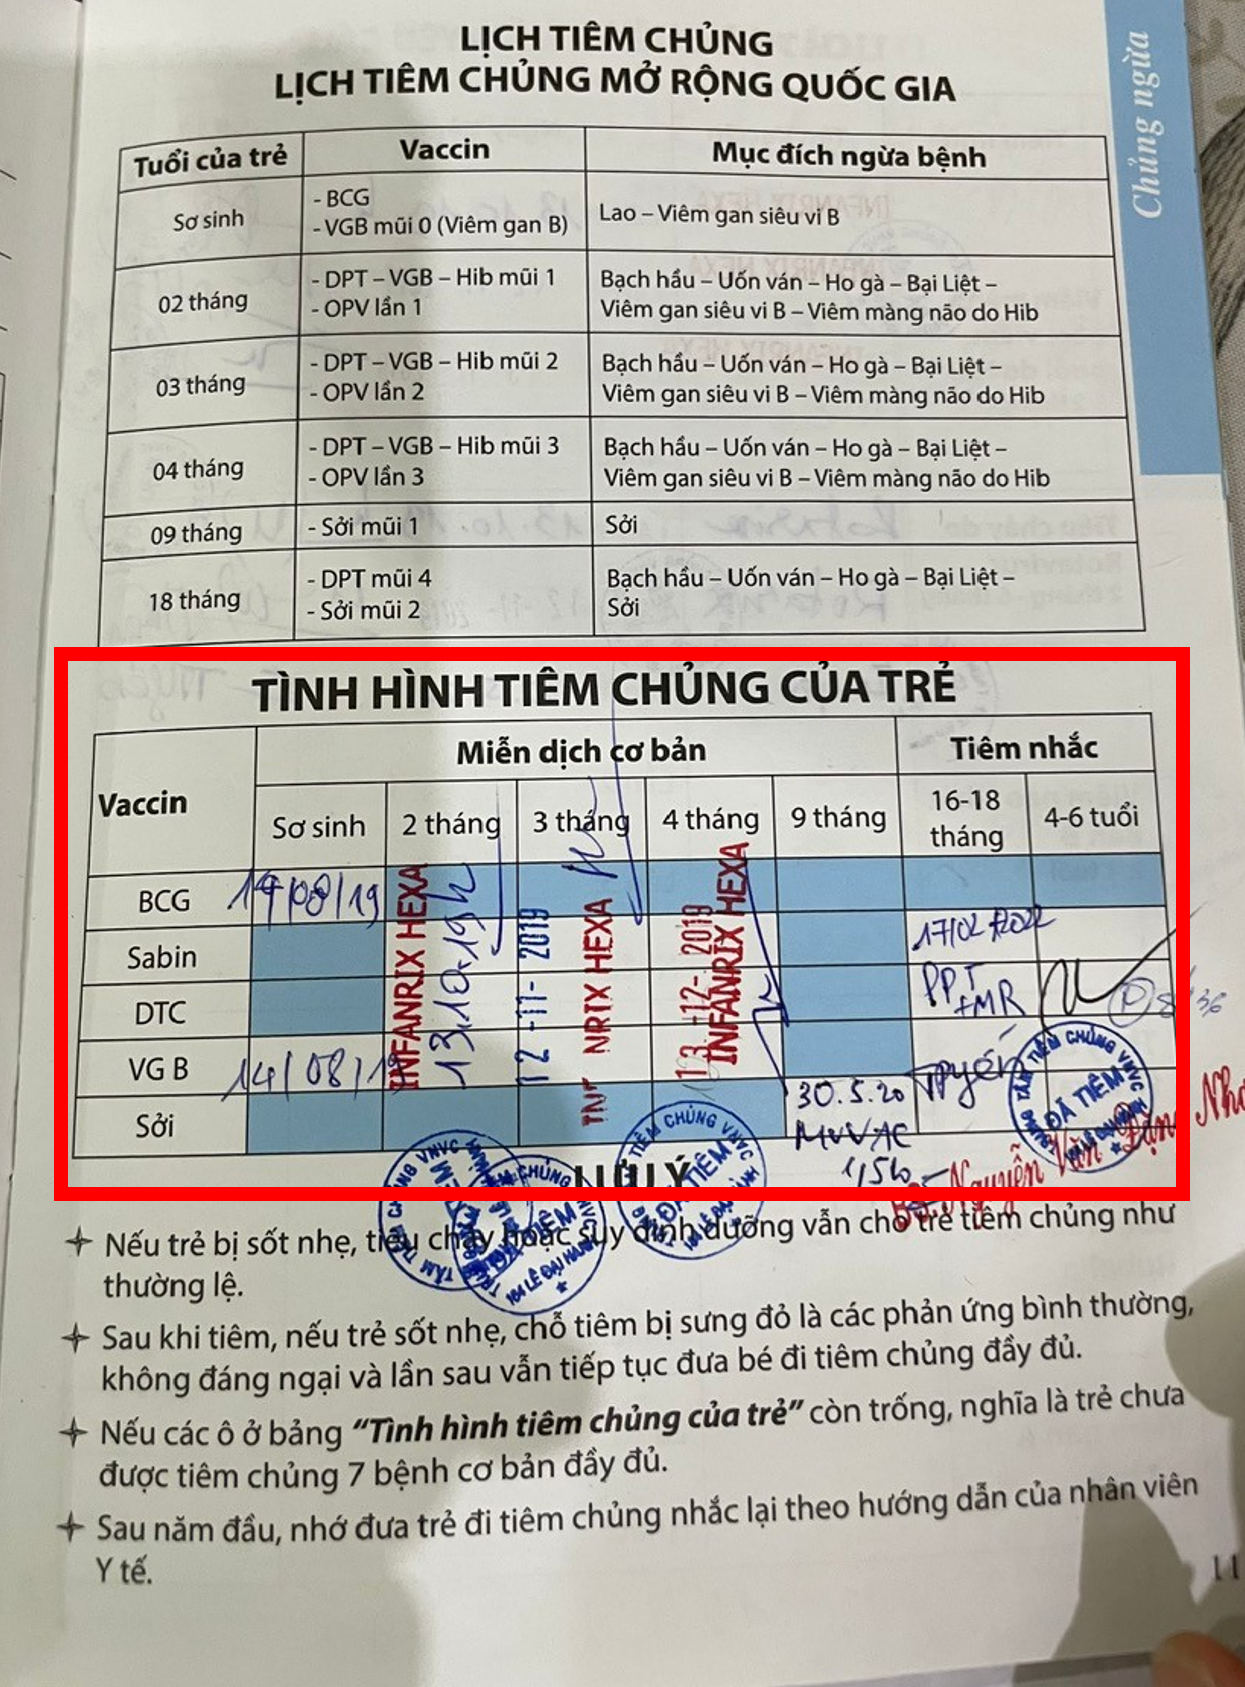 LỊCH TIÊM CHỦNG
LỊCH TIÊM CHỦNG MỞ RỘNG QUỐC GIA
Chủng ngừa
Tuổi của trẻ Vaccin Mục đích ngừa bệnh
Sơ sinh
- BCG
- VGB mũi 0 (Viêm gan B)
Lao – Viêm gan siêu vi B
02 tháng
- DPT – VGB – Hib mũi 1
- OPV lần 1
Bạch hầu – Uốn ván – Ho gà – Bại Liệt –
Viêm gan siêu vi B – Viêm màng não do Hib
03 tháng
- DPT – VGB – Hib mũi 2
- OPV lần 2
Bạch hầu – Uốn ván – Ho gà – Bại Liệt –
Viêm gan siêu vi B – Viêm màng não do Hib
04 tháng
- DPT – VGB – Hib mũi 3
- OPV lần 3
Bạch hầu – Uốn ván – Ho gà – Bại Liệt –
Viêm gan siêu vi B – Viêm màng não do Hib
09 tháng
- Sởi mũi 1
Sởi
18 tháng
- DPT mũi 4
- Sởi mũi 2
Bạch hầu – Uốn ván – Ho gà – Bại Liệt –
Sởi
TÌNH HÌNH TIÊM CHỦNG CỦA TRẺ
Vaccin Miễn dịch cơ bản Tiêm nhắc
Sơ sinh 2 tháng 3 tháng 4 tháng 9 tháng
16-18
tháng
4-6 tuổi
BCG
Sabin
DTC
VG B 14/08/19
Sởi
INFANRIX HEXA
13.10.19
12 -11- 2019
NRIX HEXA
13 -12- 2019
INFANRIX HEXA
30.5.20
MVVAC
17/02/2022
+MR
Nguyễn Văn
TIÊM CHỦNG VNVC
ĐÃ TIÊM
TIÊM CHỦNG VNVC
ĐÃ TIÊM
ĐÃ TIÊM
LƯU Ý
Nếu trẻ bị sốt nhẹ, tiêu chảy hoặc suy dinh dưỡng vẫn cho trẻ tiêm chủng như
thường lệ.
Sau khi tiêm, nếu trẻ sốt nhẹ, chỗ tiêm bị sưng đỏ là các phản ứng bình thường,
không đáng ngại và lần sau vẫn tiếp tục đưa bé đi tiêm chủng đầy đủ.
Nếu các ô ở bảng “Tình hình tiêm chủng của trẻ” còn trống, nghĩa là trẻ chưa
được tiêm chủng 7 bệnh cơ bản đầy đủ.
Sau năm đầu, nhớ đưa trẻ đi tiêm chủng nhắc lại theo hướng dẫn của nhân viên
Y tế.
11